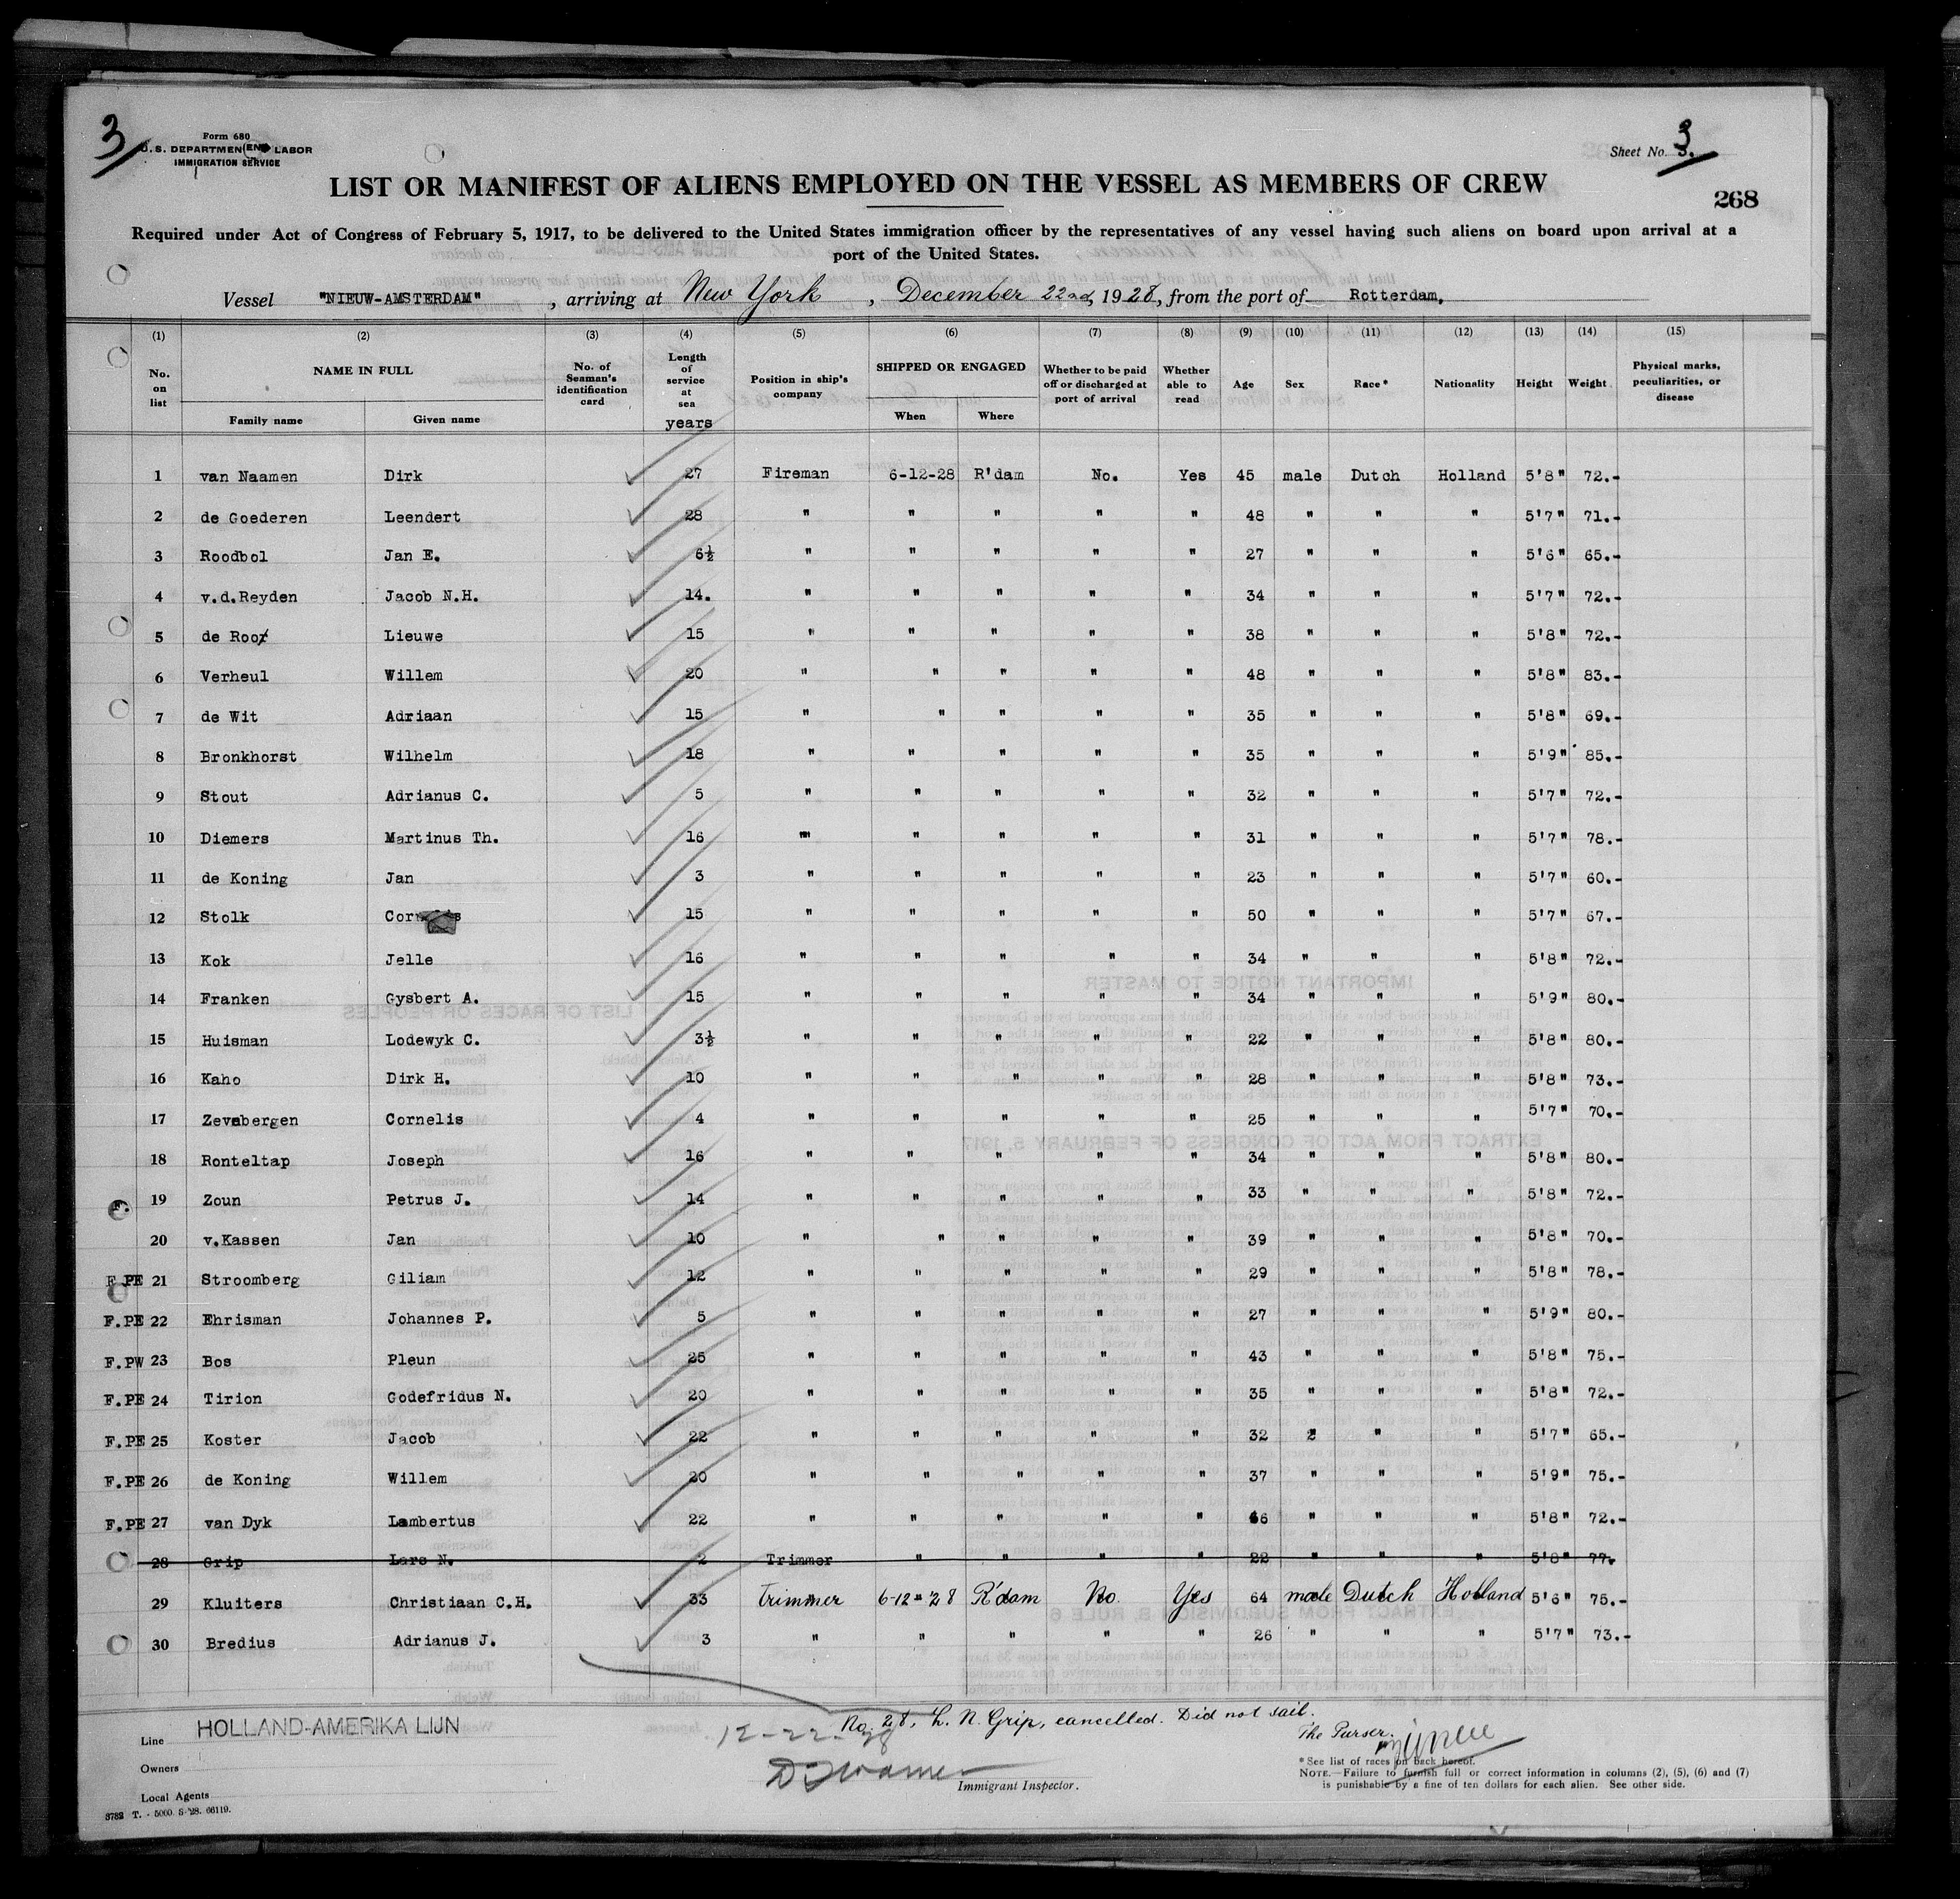 3
Form 680
U.S. DEPARTMENT LABOR
IMMIGRATION SERVICE
Sheet No. 3
LIST OR MANIFEST OF ALIENS EMPLOYED ON THE VESSEL AS MEMBERS OF CREW
268
Required under Act of Congress of February 5, 1917, to be delivered to the United States immigration officer by the representatives of any vessel having such aliens on board upon arrival at a
port of the United States.
Vessel "NIEUW-AMSTERDAM", arriving at New York, December 22nd, 1928, from the port of Rotterdam.
(1) (2) (3) (4) (5) (6) (7) (8) (9) (10) (11) (12) (13) (14) (15)
No. on list NAME IN FULL Family name Given name No. of Seaman's identification card Length of service at sea years Position in ship's company SHIPPED OR ENGAGED When Where Whether to be paid off or discharged at port of arrival Whether able to read Age Sex Race* Nationality Height Weight Physical marks, peculiarities, or disease
1 van Naamen Dirk 27 Fireman 6-12-28 R'dam No. Yes 45 male Dutch Holland 5'8" 72.-
2 de Goederen Leendert 28 " " " " " 48 " " " 5'7" 71.-
3 Roodbol Jan E. 6½ " " " " " 27 " " " 5'6" 65.-
4 v.d.Reyden Jacob N.H. 14. " " " " " 34 " " " 5'7" 72.-
5 de Roo Lieuwe 15 " " " " " 38 " " " 5'8" 72.-
6 Verheul Willem 20 " " " " " 48 " " " 5'8" 83.-
7 de Wit Adriaan 15 " " " " " 35 " " " 5'8" 69.-
8 Bronkhorst Wilhelm 18 " " " " " 35 " " " 5'9" 85.-
9 Stout Adrianus C. 5 " " " " " 32 " " " 5'7" 72.-
10 Diemers Martinus Th. 16 " " " " " 31 " " " 5'7" 78.-
11 de Koning Jan 3 " " " " " 23 " " " 5'7" 60.-
12 Stolk 15 " " " " " 50 " " " 5'7" 67.-
13 Kok Jelle 16 " " " " " 34 " " " 5'8" 72.-
14 Franken Gysbert A. 15 " " " " " 34 " " " 5'9" 80.-
15 Huisman Lodewyk C. 3½ " " " " " 22 " " " 5'8" 80.-
16 Kaho Dirk H. 10 " " " " " 28 " " " 5'8" 73.-
17 Zevenbergen Cornelis 4 " " " " " 25 " " " 5'7" 70.-
18 Ronteltap Joseph 16 " " " " " 34 " " " 5'8" 80.-
F. 19 Zoun Petrus J. 14 " " " " " 33 " " " 5'8" 72.-
20 v.Kassen Jan 10 " " " " " 39 " " " 5'8" 70.-
F PE 21 Stroomberg Giliam 12 " " " " " 29 " " " 5'8" 78.-
F.PE 22 Ehrisman Johannes P. 5 " " " " " 27 " " " 5'9" 80.-
F.PW 23 Bos Pleun 25 " " " " " 43 " " " 5'8" 75.-
F.PE 24 Tirion Godefridus N. 20 " " " " " 35 " " " 5'8" 72.-
F.PE 25 Koster Jacob 22 " " " " " 32 " " " 5'7" 65.-
F.PE 26 de Koning Willem 20 " " " " " 37 " " " 5'9" 75.-
F.PE 27 van Dyk Lambertus 22 " " " " " 46 " " " 5'8" 72.-
28 Grip Lars N. 2 Trimmer " " " " 22 " " " 5'8" 77.
29 Kluiters Christiaan C.H. 33 Trimmer 6-12-'28 R'dam No. Yes 64 male Dutch Holland 5'6" 75.-
30 Bredius Adrianus J. 3 " " " " " 26 " " " 5'7" 73.-
No. 28, L. N. Grip, cancelled. Did not sail.
The Purser.
12-22-28
Line HOLLAND-AMERIKA LIJN
Owners
Local Agents
3782 T. - 5000. S-'28. 66119.
Immigrant Inspector.
*See list of races on back hereof.
NOTE.—Failure to furnish full or correct information in columns (2), (5), (6) and (7)
is punishable by a fine of ten dollars for each alien. See other side.